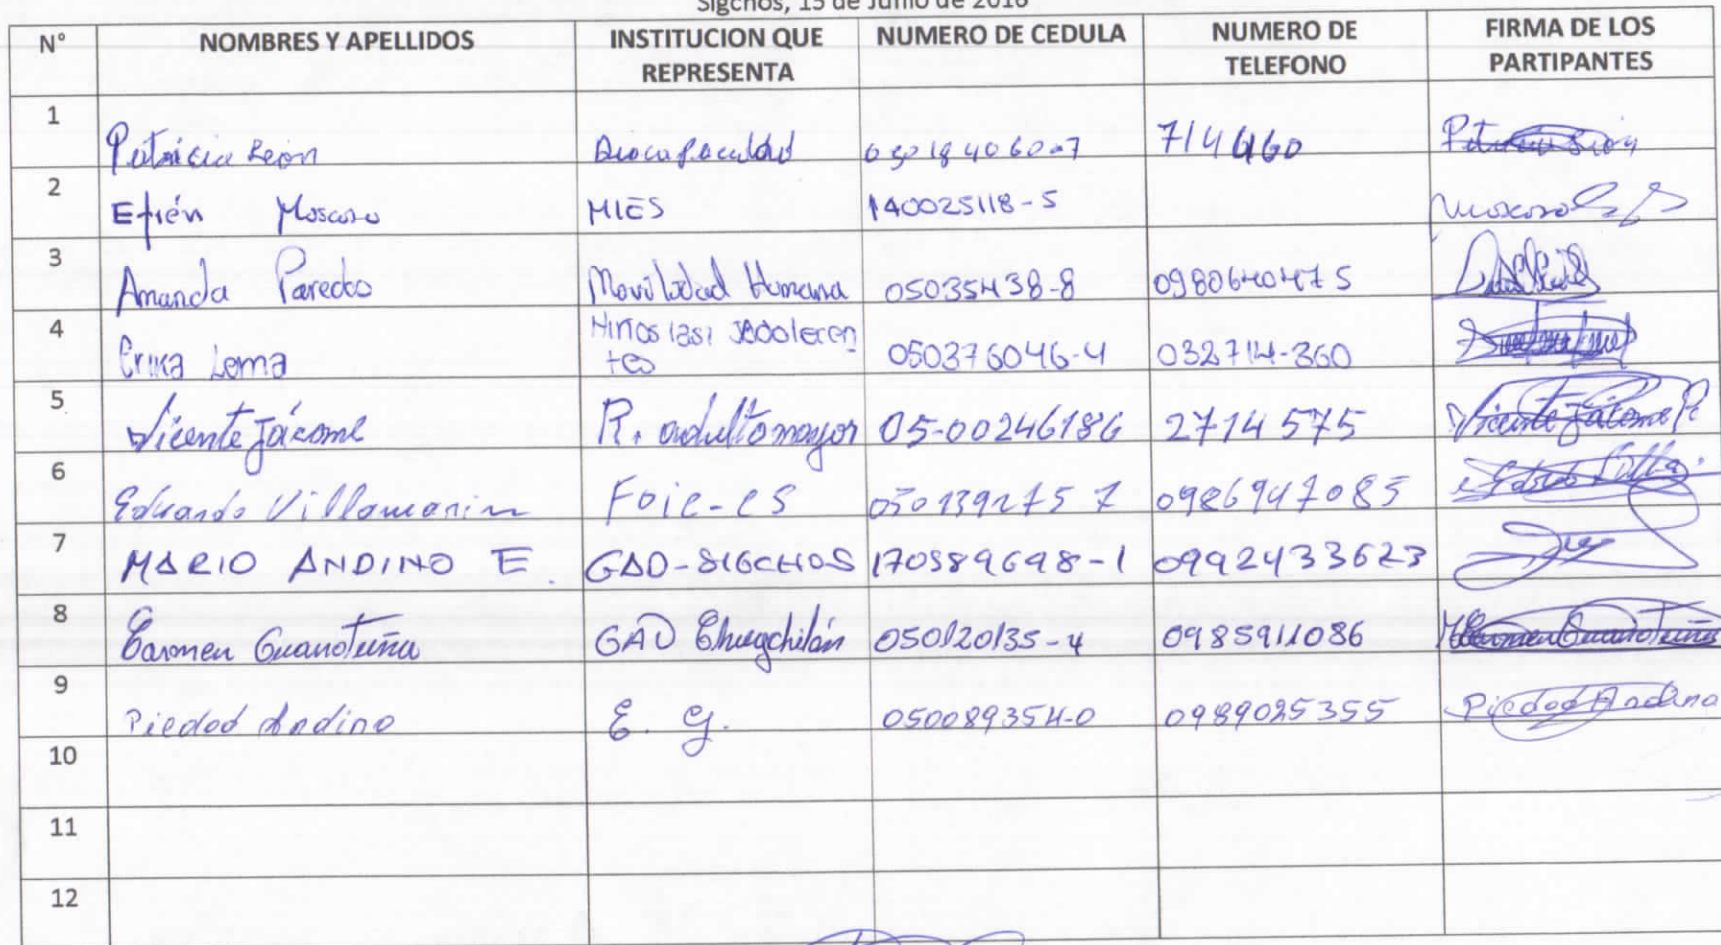 Sigchos, 15 de Junio de 2016
N° NOMBRES Y APELLIDOS INSTITUCION QUE REPRESENTA NUMERO DE CEDULA NUMERO DE TELEFONO FIRMA DE LOS PARTIPANTES
1 Patricia Leon 714460
2 Efrén Moscoso MIES 140025118-5 Moscoso
3 Amanda Paredes Movilidad Humana 05035438-8 0980640475
4 Erika Loma 050376046-4 032714-360
5 Vicente Jácome R. adulto mayor 05-00246186 2714575 Vicente Jácome P.
6 Eduardo Villamarin 050139275-7 0986947085
7 MARIO ANDINO E. GAD-SIGCHOS 170589698-1 0992433623
8 Carmen Guanotuña GAD Chugchilán 050120135-4 0985911086 Carmen Guanotuña
9 Piedad Andino E. G. 050089354-0 0989025355 Piedad Andino
10
11
12